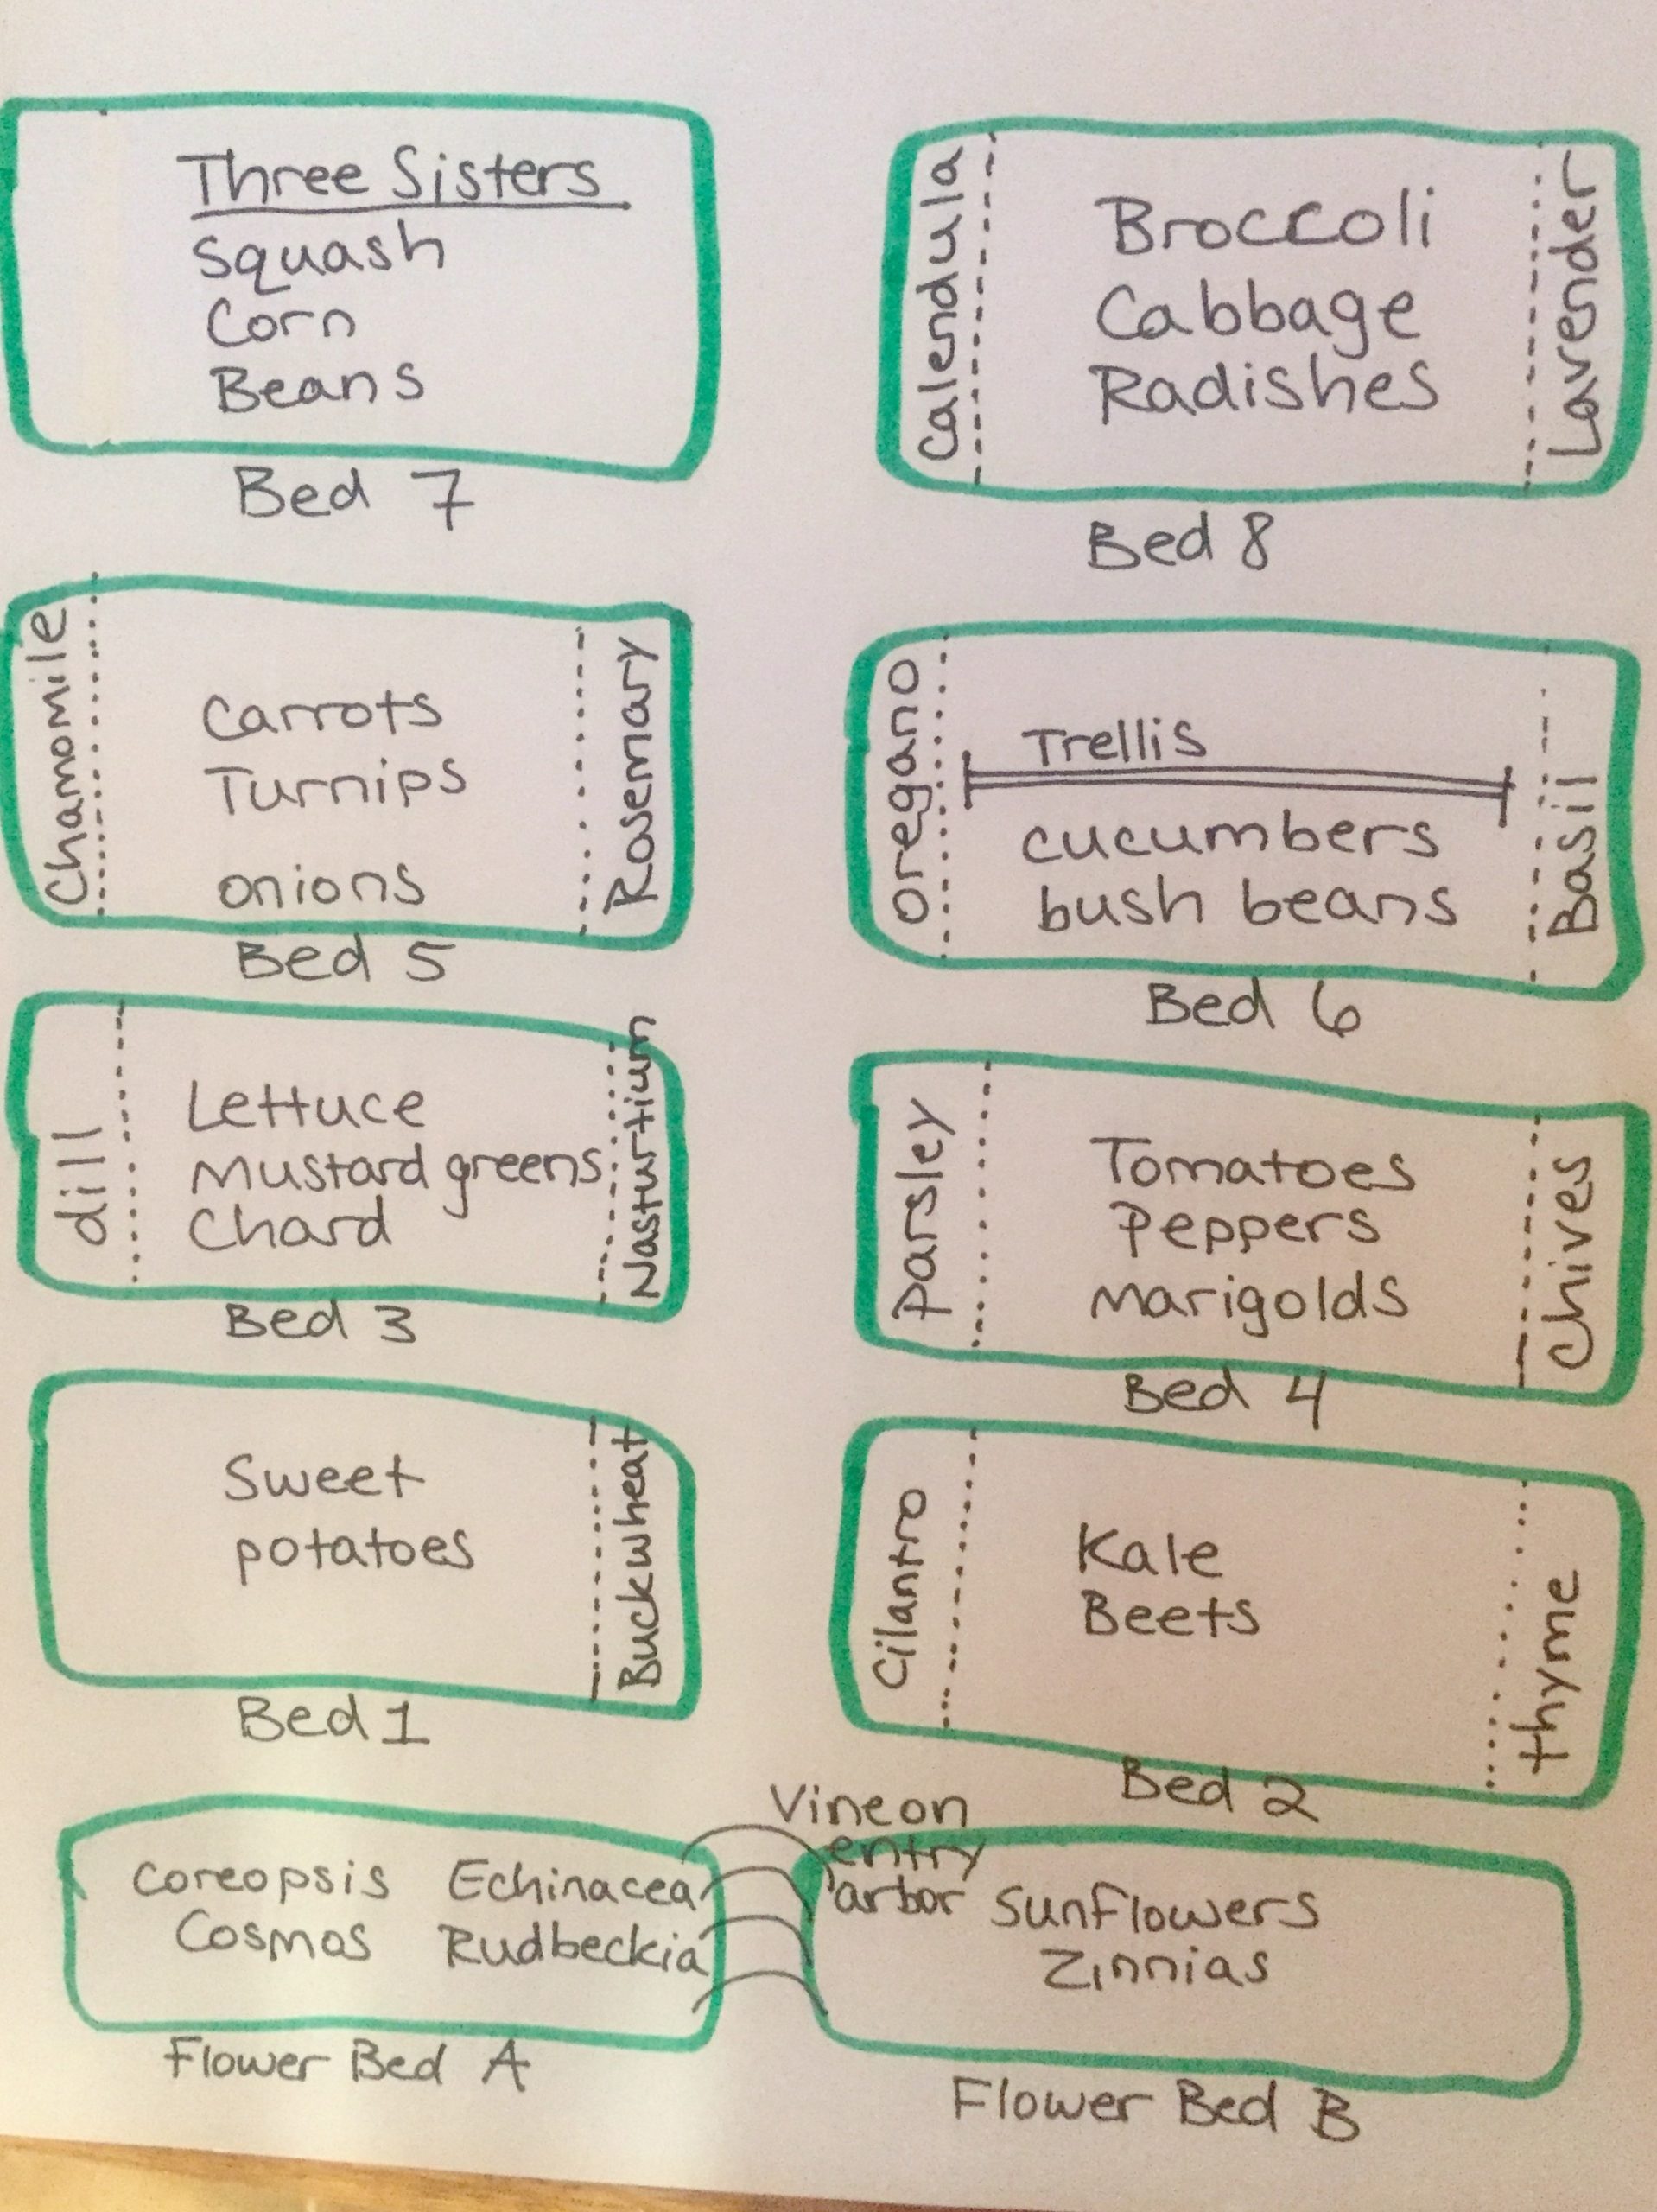 Three Sisters
Squash
Corn
Beans
Bed 7
Calendula
Broccoli
Cabbage
Radishes
Lavender
Bed 8
Chamomile
Carrots
Turnips
onions
Rosemary
Bed 5
oregano
Trellis
cucumbers
bush beans
Basil
Bed 6
dill
Lettuce
Mustard greens
Chard
Nasturtium
Bed 3
Parsley
Tomatoes
Peppers
Marigolds
Chives
Bed 4
Sweet
potatoes
Buckwheat
Bed 1
Cilantro
Kale
Beets
thyme
Bed 2
Vine on
entry
arbor
Coreopsis Echinacea
Cosmos Rudbeckia
Flower Bed A
Sunflowers
Zinnias
Flower Bed B